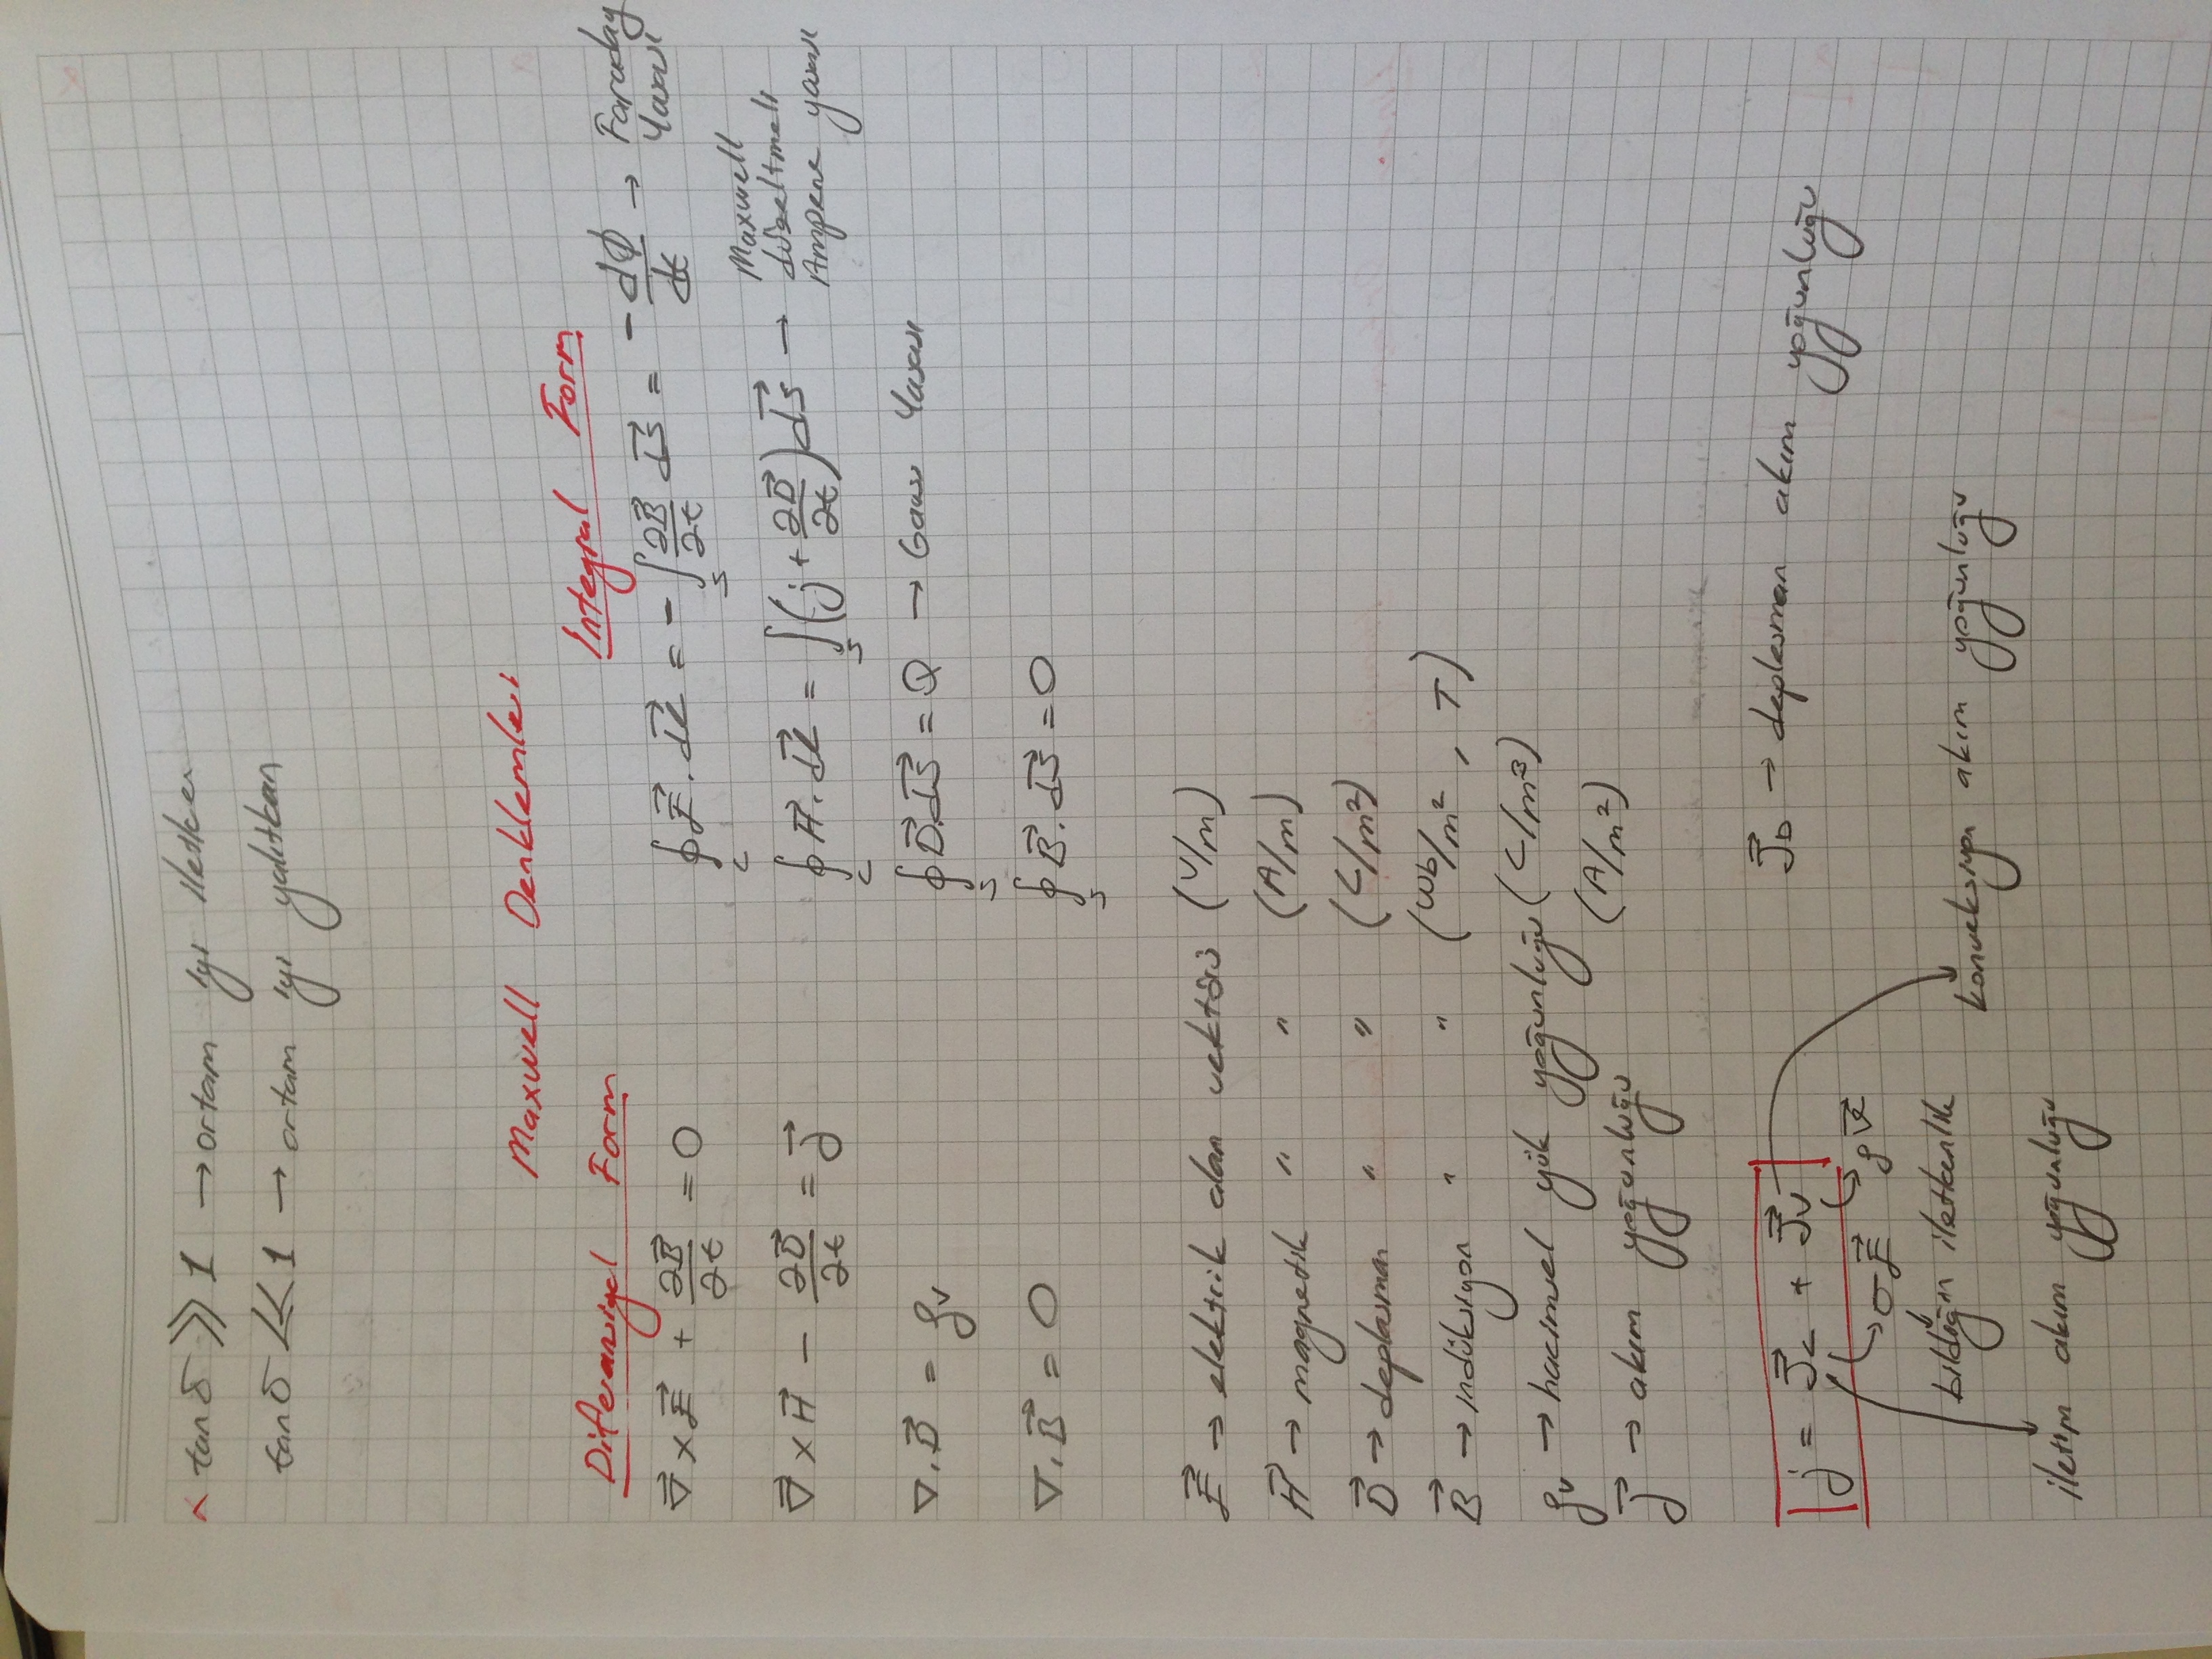 tanδ ≫ 1 → ortam iyi iletken
tanδ ≪ 1 → ortam iyi yalıtkan
Maxwell Denklemleri
Diferansiyel Form
Integral Form
∇⃗ × E⃗ + ∂B⃗/∂t = 0
∮c E⃗ . dℓ⃗ = - ∫s ∂B⃗/∂t dS⃗ = -dΦ/dt → Faraday Yasası
∇⃗ × H⃗ - ∂D⃗/∂t = J⃗
∮c H⃗ . dℓ⃗ = ∫s (j + ∂D⃗/∂t) dS⃗ → Maxwell düzeltmeli Ampere yasası
∇ . D⃗ = ρv
∮s D⃗ . dS⃗ = Q → Gauss Yasası
∇ . B⃗ = 0
∮s B⃗ . dS⃗ = 0
E⃗ → elektrik alan vektörü (V/m)
H⃗ → magnetik " " (A/m)
D⃗ → deplasman " " (C/m²)
B⃗ → indüksiyon " " (Wb/m², T)
ρv → hacimsel yük yoğunluğu (C/m³)
J⃗ → akım yoğunluğu (A/m²)
j = J⃗c + J⃗v
J⃗D → deplasman akım yoğunluğu
σE⃗ ρV⃗
bildiğin iletkenlik
konveksiyon akım yoğunluğu
iletim akım yoğunluğu